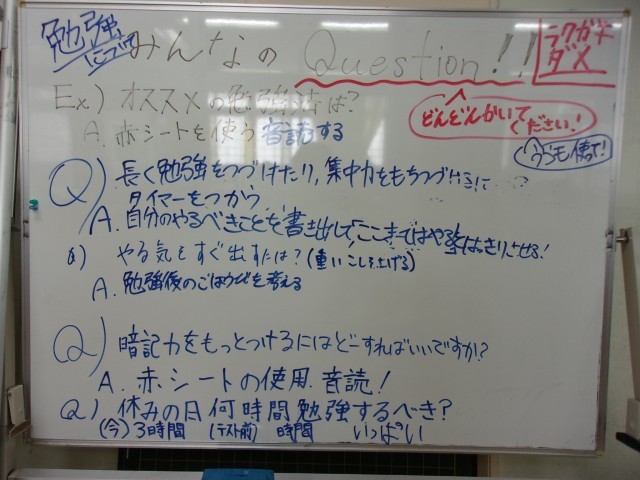 勉強について みんなの Question!!
ラクガキ
ダメ
Ex) オススメの勉強法は?
どんどんかいて
ください!
A. 赤シートを使う 音読する
うらも使って!
Q) 長く勉強をつづけたり, 集中力をもちつづけるには…?
タイマーをつかう
A. 自分のやるべきことを書き出して「ここまではやる」をはっきりさせる!
Q) やる気をすぐ出すには? (重いこしを上げる)
A. 勉強後のごほうびを考える
Q) 暗記力をもっとつけるにはどーすればいいですか?
A. 赤シートの使用. 音読!
Q) 休みの日何時間勉強するべき?
(今) 3時間 (テスト前) 時間 いっぱい